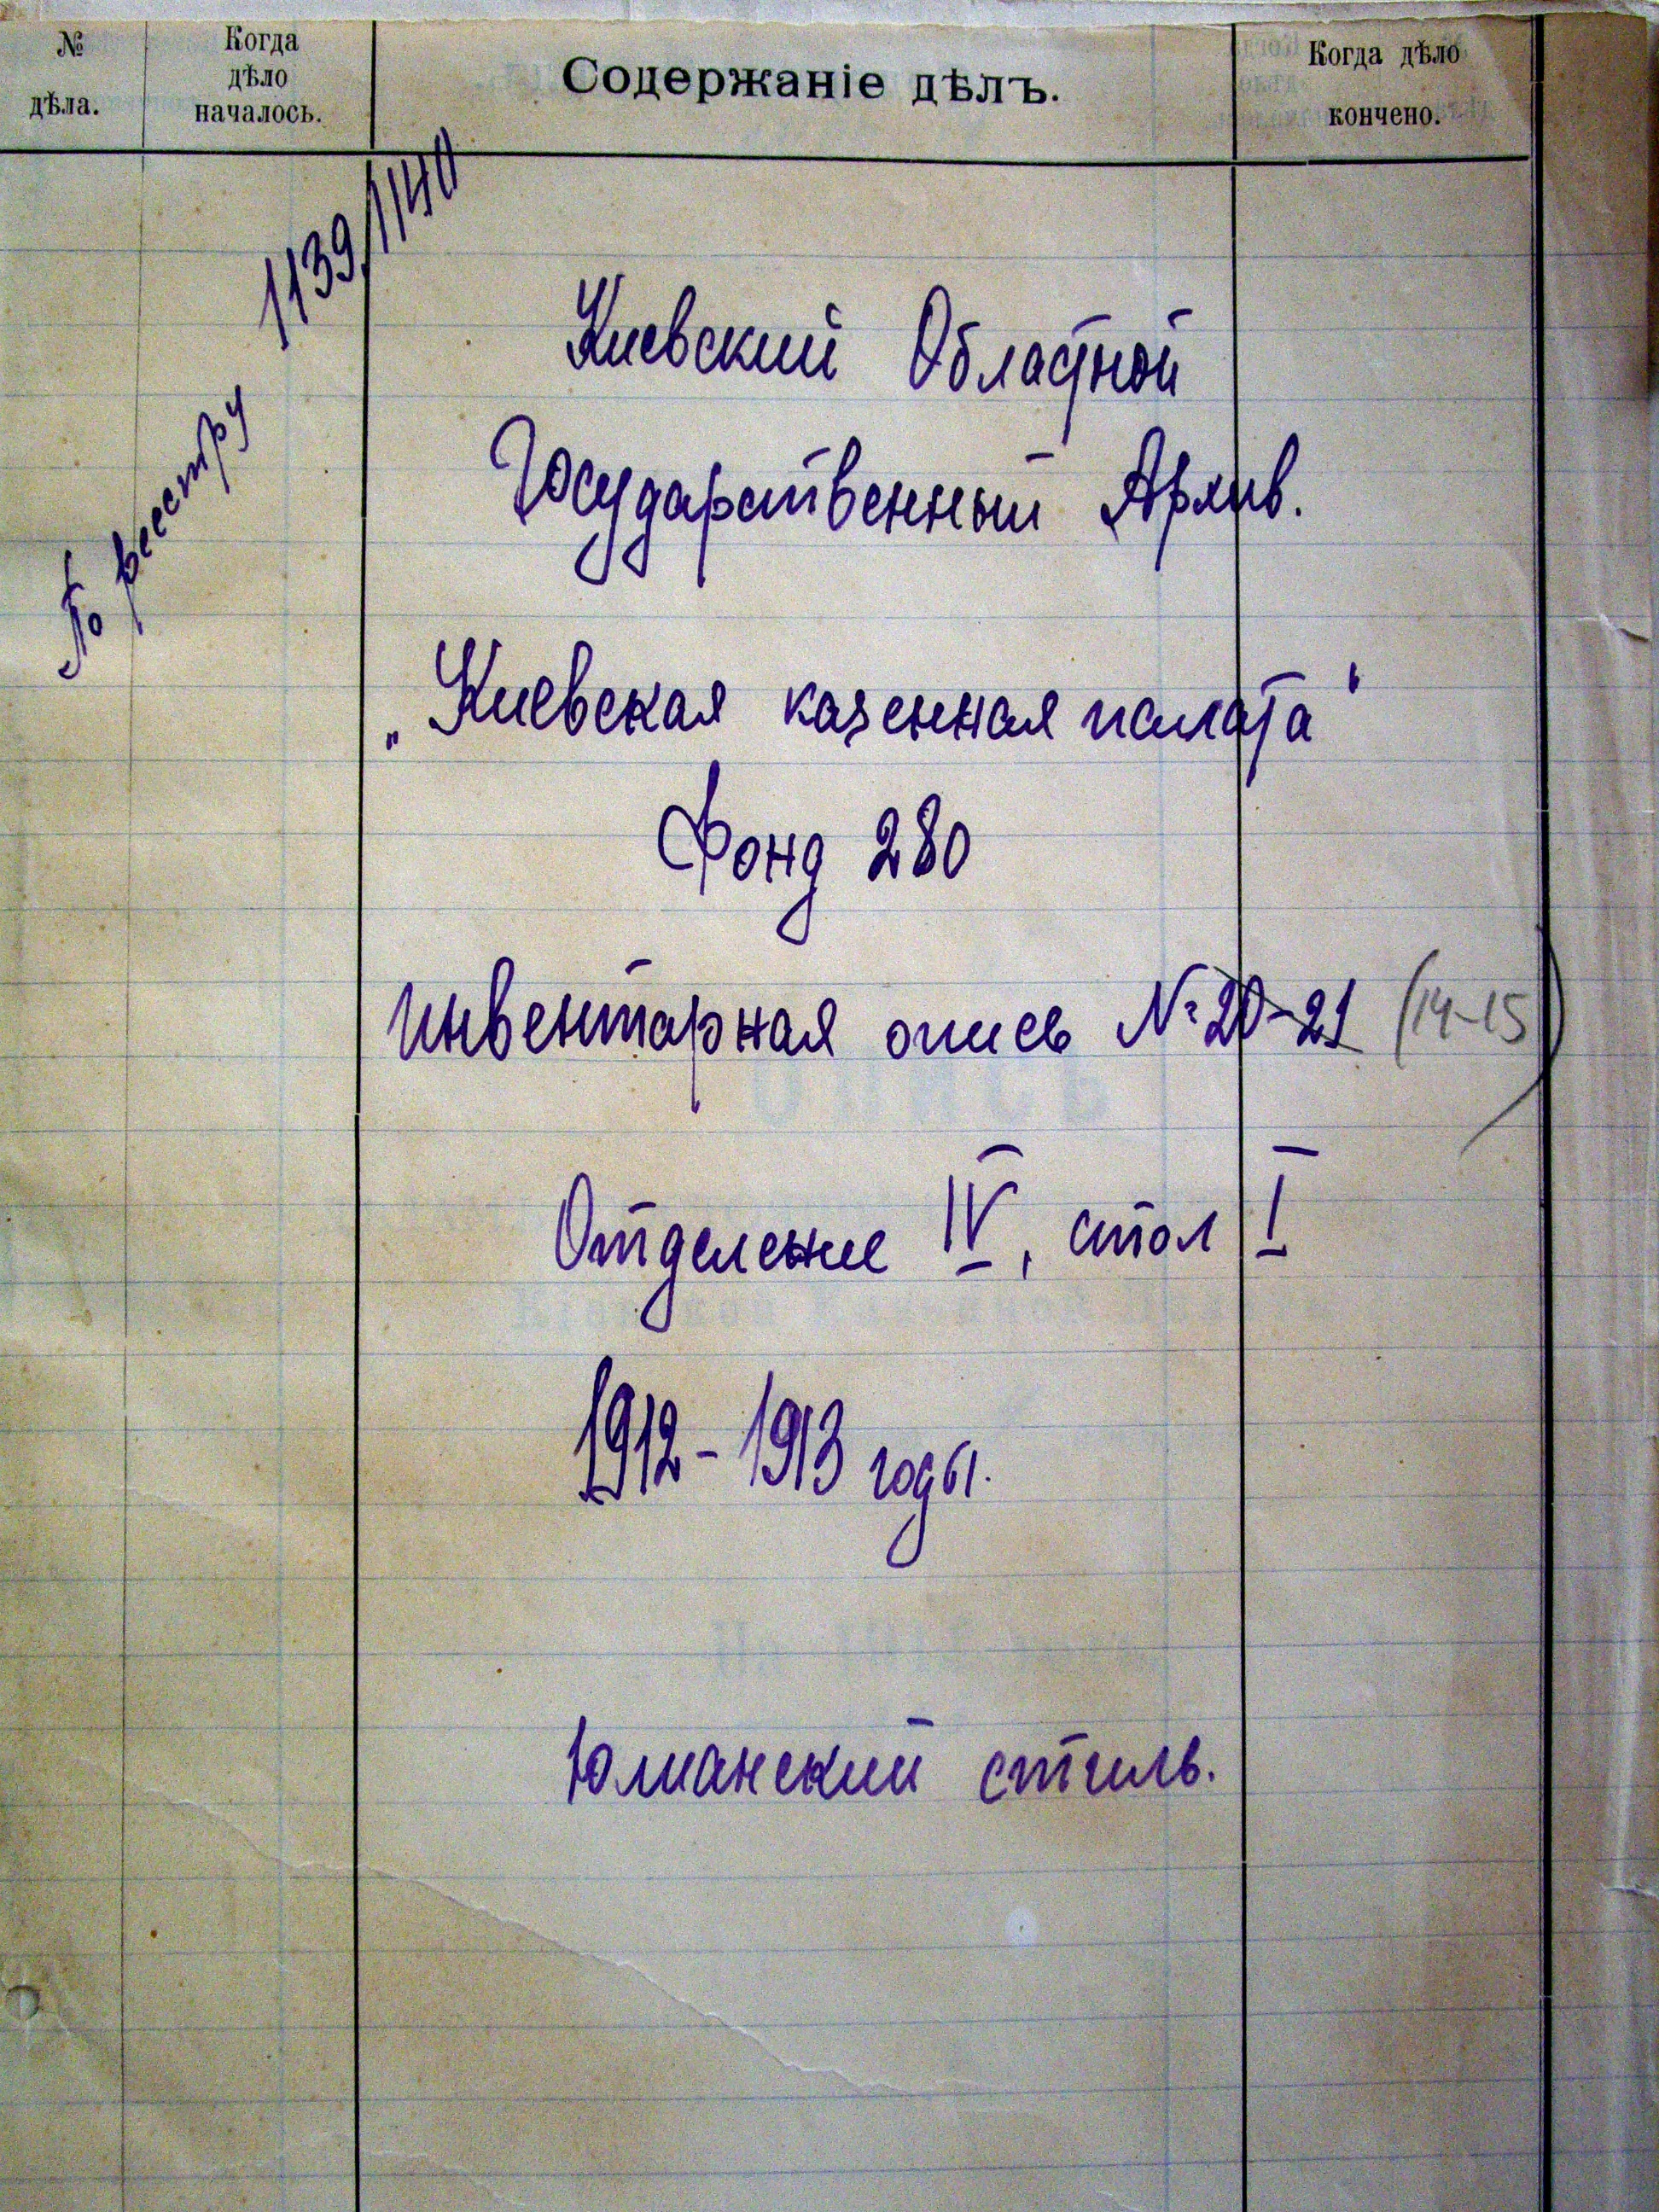 № дѣла.
Когда дѣло началось.
Содержаніе дѣлъ.
Когда дѣло кончено.
По реестру 1139/1140
Киевский Областной
Государственный Архив.
„Киевская казенная палата“
Фонд 280
Инвентарная опись № 20-21 (14-15)
Отделение IV, стол I
1912-1913 годы.
Юлианский стиль.